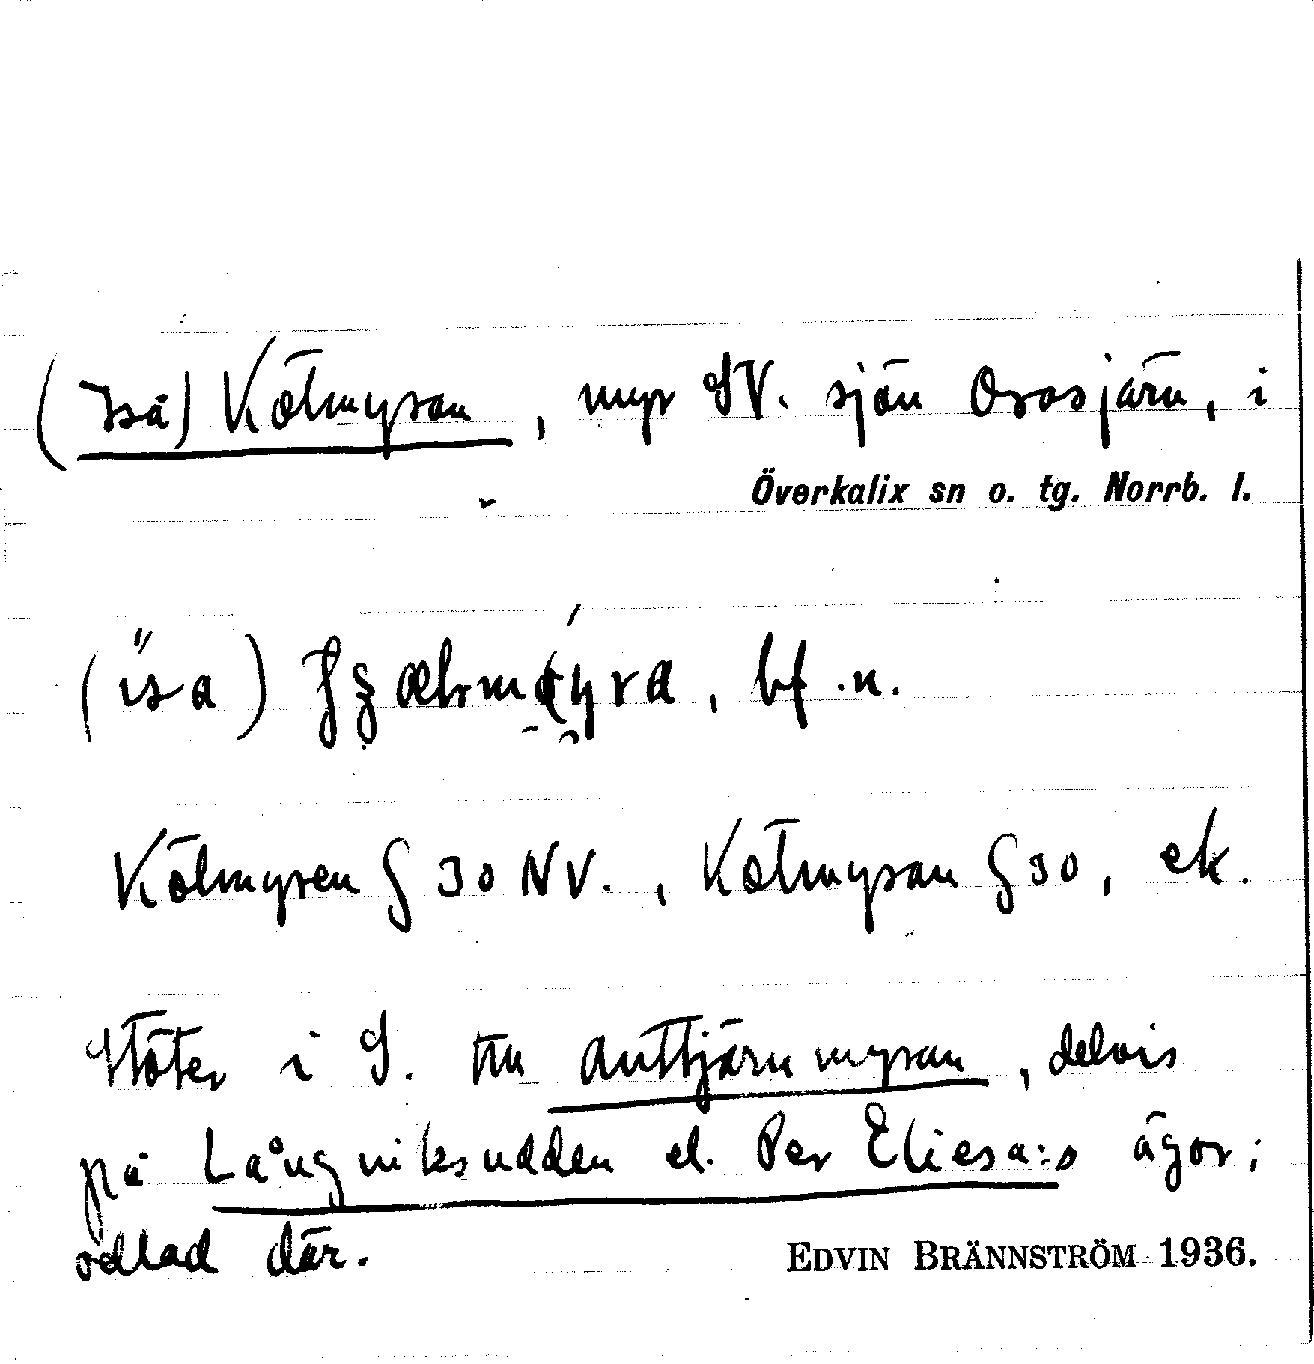 (Isa) Kölmyran, myr SV. sjön Orrsjärn, i
Överkalix sn o. tg. Norrb. l.
(isa) bf.n.
Kölmyren § 30 NV., Kölmyran § 30, ek.
Stöter i S. till Anttjärnmyran, delvis
på Långviksudden el. Per Eliesa:s ägor;
odlad där.
EDVIN BRÄNNSTRÖM 1936.